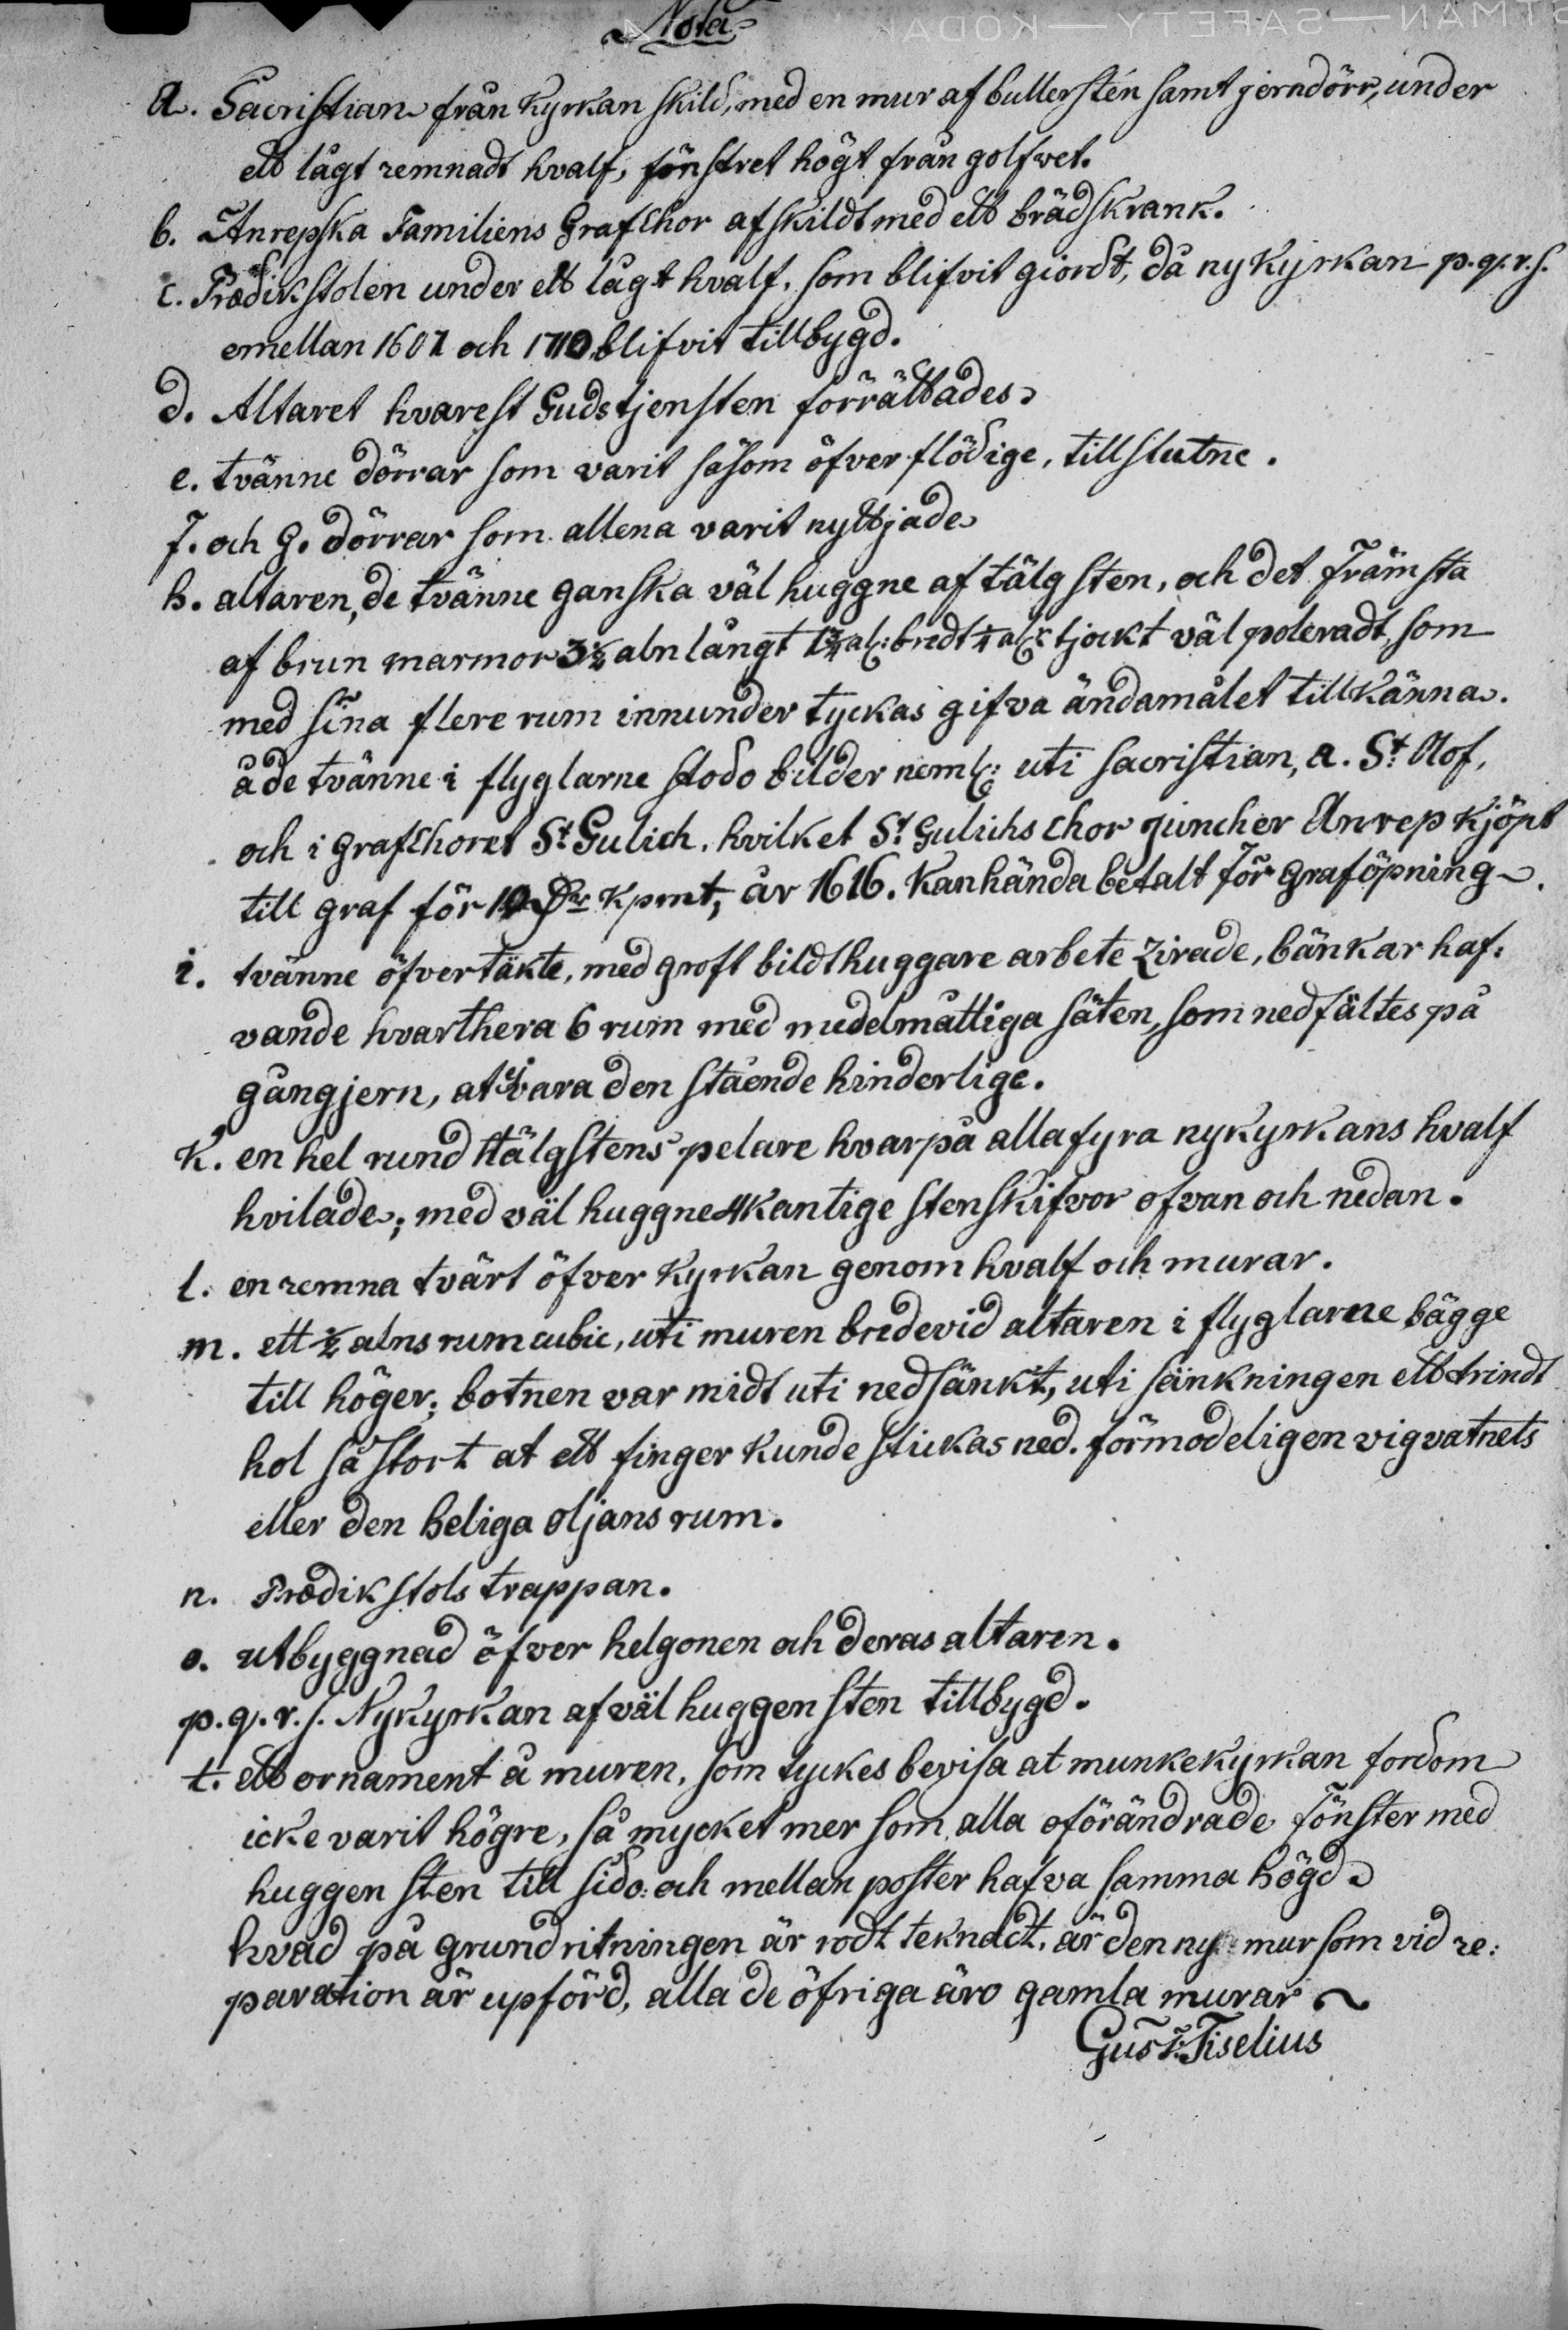 Nota
STMAN—SAFETY—KODAK 4
a. Sacristian från Kyrkan skild, med en mur af bullersten samt jerndörr, under
ett lågt remnadt hvalf, fönstret högt från golfvet.
b. Anrepska Familiens Grafchor afskildt med ett brädskrank.
c. Prædikstolen under ett lågt hvalf, som blifvit giordt, då nykyrkan p.q.r.s.
emellan 1607 och 1710 blifvit tillbygd.
d. Altaret hvarest Gudstjensten förrättades
e. tvänne dörrar som varit såsom öfverflödige, tillslutne.
f. och g. dörrar som allena varit nyttjade
h. altaren, de tvänne ganska väl huggne af tälgsten, och det främsta
af brun marmor 3½ aln långt 1¾ al: bredt ¼ al: tjockt väl poleradt, som
med sina flere rum innunder tyckas gifva ändamålet tillkänna.
å de tvänne i flyglarne stodo bilder neml: uti sacristian, a. St Olof,
och i grafchoret St Gulich, hvilket St Gulichs chor juncher Anrep kjöpt
till graf för 10 Dr Kpmt, år 1616. Kanhända betalt för graföpning.
i. tvänne öfvertäkte, med groft bildthuggare arbete zirade, bänkar haf:
vande hvarthera 6 rum med medelmåttiga säten, som nedfältes på
gångjern, at ej vara den stående hinderlige.
K. en hel rund tälgstens pelare hvarpå alla fyra nykyrkans hvalf
hvilade; med väl huggne 4kantige stenskifvor ofvan och nedan.
l. en remna tvärt öfver Kyrkan genom hvalf och murar.
m. ett ½ alns rum cubic, uti muren bredevid altaren i flyglarne bägge
till höger; botnen var midt uti nedsänkt, uti sänkningen ett trindt
hol så stort at ett finger kunde stickas ned. förmodeligen vigvatnets
eller den heliga oljans rum.
n. Prædikstols trappan.
o. utbyggnad öfver helgonen och deras altaren.
p.q.r.s. Nykyrkan af väl huggen sten tillbygd.
t. ett ornament å muren, som tyckes bevisa at munkekyrkan fordom
icke varit högre, så mycket mer som alla oförändrade fönster med
huggen sten till sido: och mellan poster hafva samma högd
hvad på grundritningen är rödt teknadt, är den ny mur som vid re:
paration är upförd, alla de öfriga äro gamla murar
Gust: Tiselius